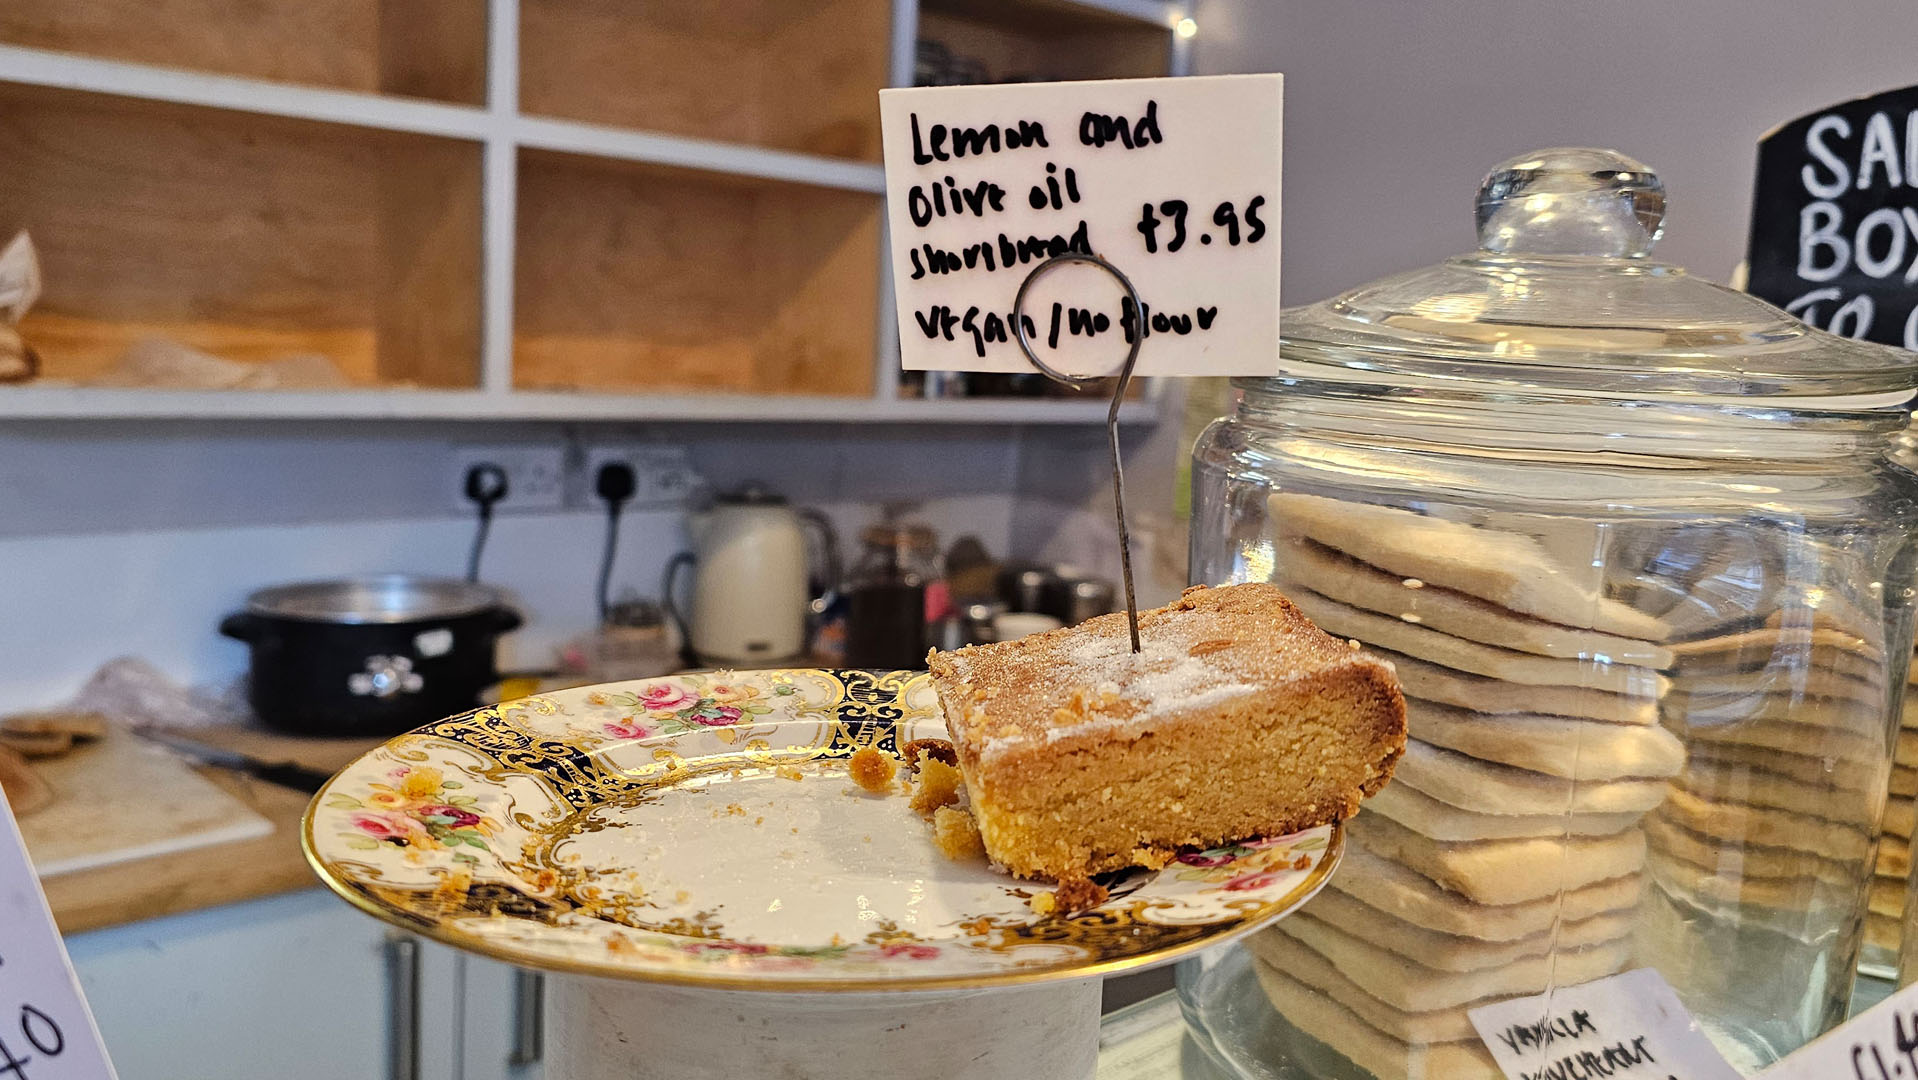 Lemon and
Olive oil
shortbread £3.95
vegan / no flour
SAL
BOX
TO
VANILLA